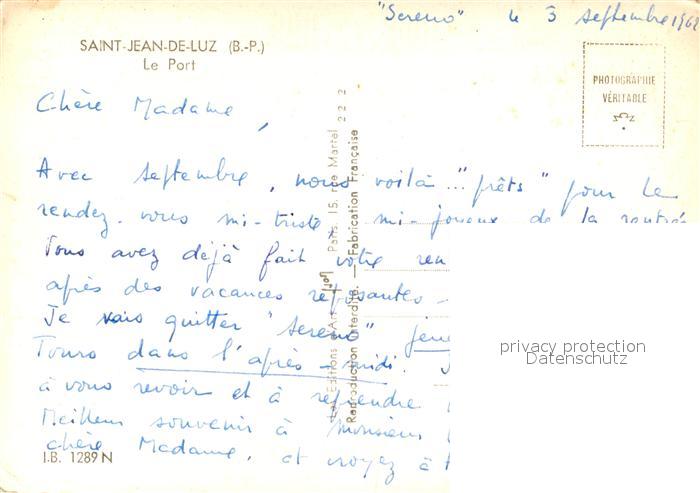 "Sereno" le 3 septembre 1962
SAINT-JEAN-DE-LUZ (B.-P.)
Le Port
PHOTOGRAPHIE
VÉRITABLE
Chère Madame,
Avec septembre, nous voilà "prêts" pour le
rendez-vous mi-triste, mi-joyeux de la rentrée
Vous avez déjà fait votre ren
après des vacances reposantes -
Je vais quitter "Sereno"
Tours dans l'après-midi.
à vous revoir et à reprendre
Meilleur souvenir à Monsieur
chère Madame, et croyez à
I.B. 1289 N
Les Éditions d'Art Paris. 15, rue Martel 222
Reproduction Interdite. — Fabrication Française
privacy protection
Datenschutz